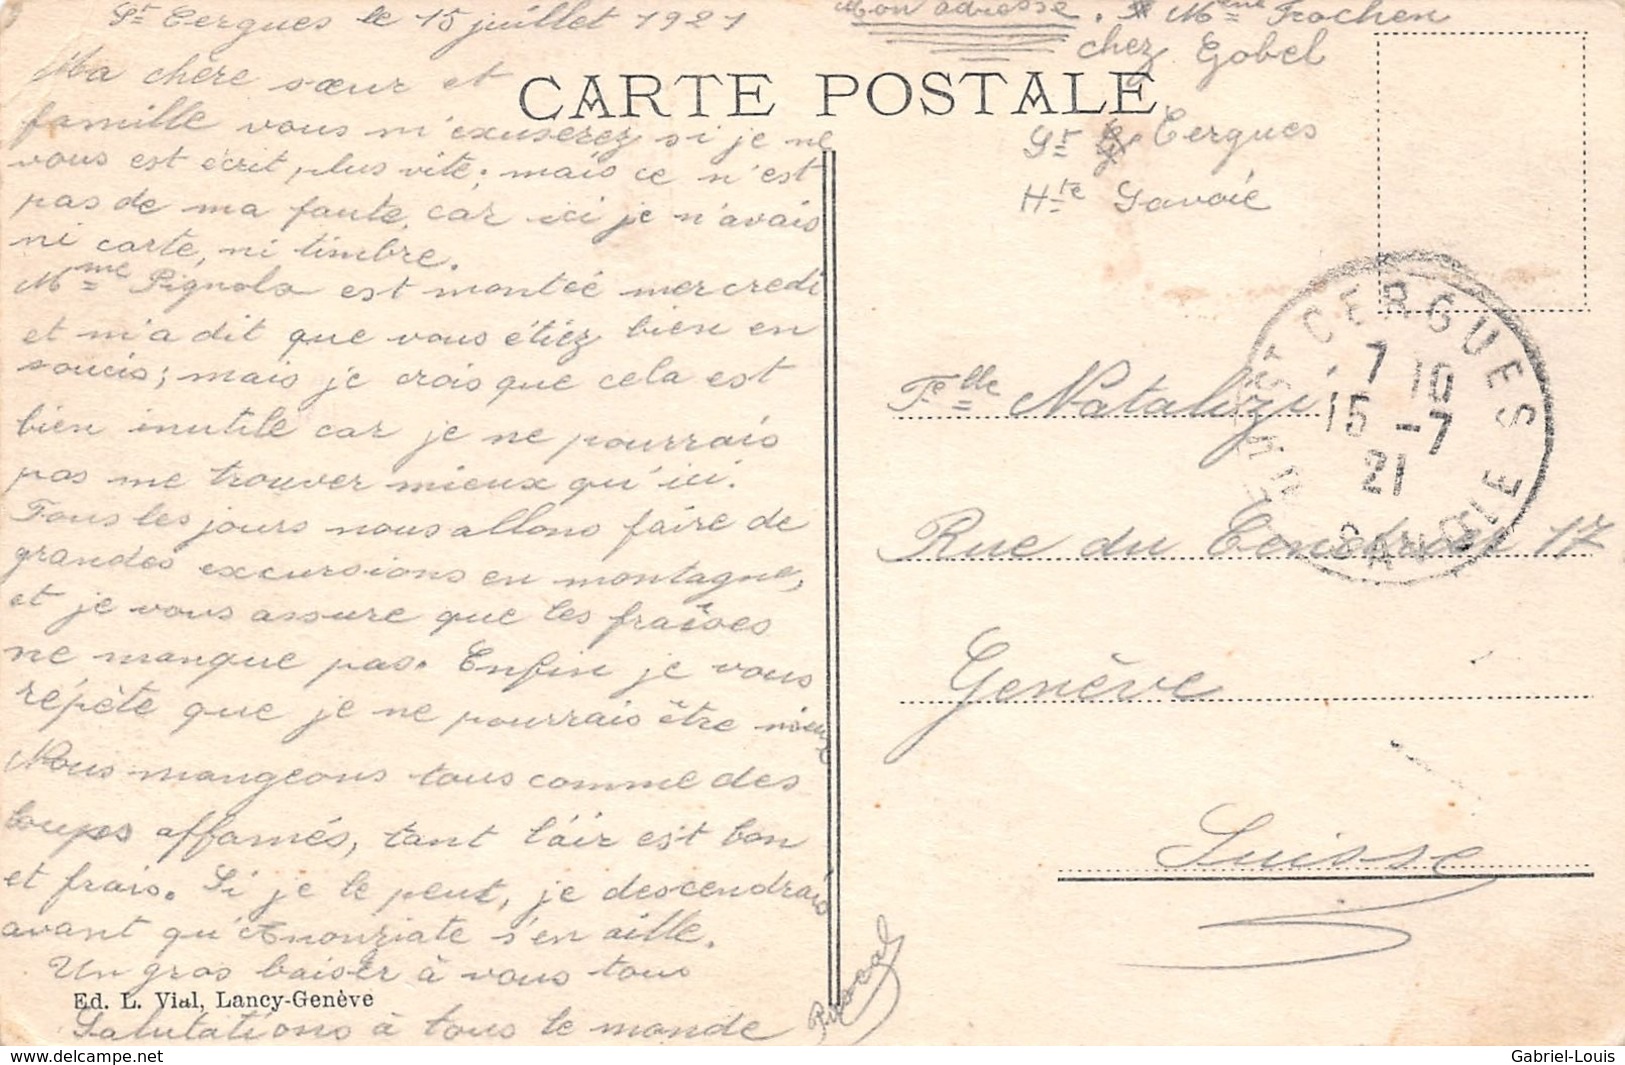 St Cergues le 15 juillet 1921
Ma chère sœur et
famille vous m'exuserez si je ne
vous est écrit, plus vite; mais ce n'est
pas de ma faute, car ici je n'avais
ni carte, ni timbre.
Mme Pignola est montée mercredi
et m'a dit que vous étiez bien en
soucis; mais je crois que cela est
bien inutile car je ne pourrais
pas me trouver mieux qu'ici.
Tous les jours nous allons faire de
grandes excursions en montagne,
et je vous assure que les fraises
ne manque pas. Enfin je vous
répète que je ne pourrais être mieux
Nous mangeons tous comme des
loups affamés, tant l'air est bon
et frais. Si je le peut, je descendrais
avant qu'Anonziate s'en aille.
Un gros baiser à vous tous
Salutations à tous le monde
Ed. L. Vial, Lancy-Genève
CARTE POSTALE
Mon adresse. Mme Trochen
chez Gobel
St Cergues
Hte Savoie
ST CERGUES
7 10
15 -7
21
HTE SAVOIE
Felle Natalizi
Rue du Cendrier 17
Genève
Suisse
www.delcampe.net
Gabriel-Louis